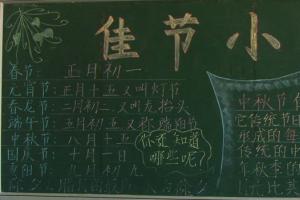 佳节小
春节：正月初一
元宵节：正月十五又叫灯节
春龙节：二月初二又叫龙抬头
端午节：五月初五又称端阳节
中秋节：八月十五
国庆节：十月一日
重阳节：九月初九
你还知道
哪些呢？
中秋节
它传统节日
形成的每
传统的中
年秋季的